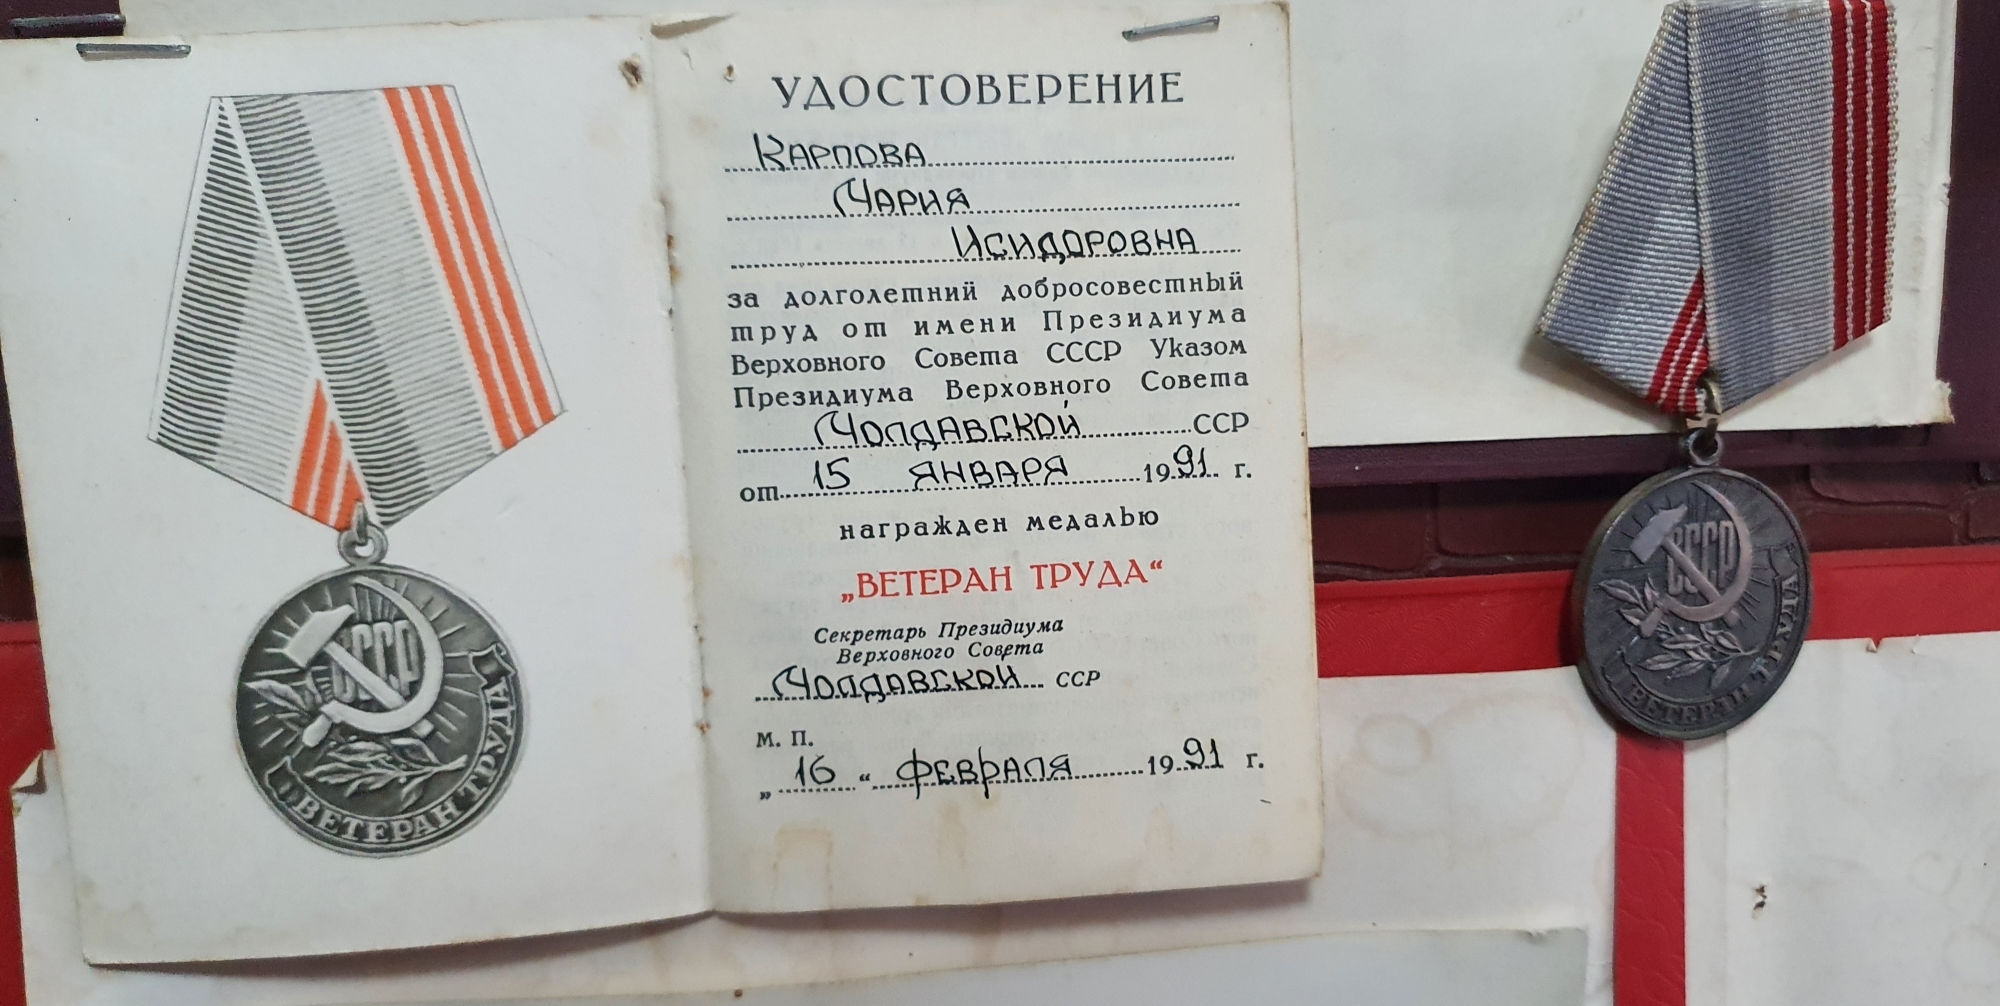 СССР
ВЕТЕРАН ТРУДА
УДОСТОВЕРЕНИЕ
Карпова
Мария
Исидоровна
за долголетний добросовестный
труд от имени Президиума
Верховного Совета СССР Указом
Президиума Верховного Совета
Молдавской ССР
от 15 января 1991 г.
награжден медалью
„ВЕТЕРАН ТРУДА“
Секретарь Президиума
Верховного Совета
Молдавской ССР
М. П.
„16“ февраля 1991 г.
СССР
ВЕТЕРАН ТРУДА